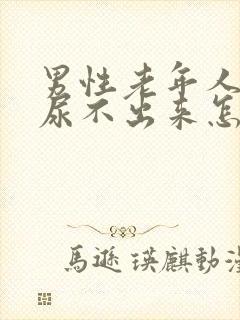 男性老年人
尿不出来怎
馬遜瑛麒動漫